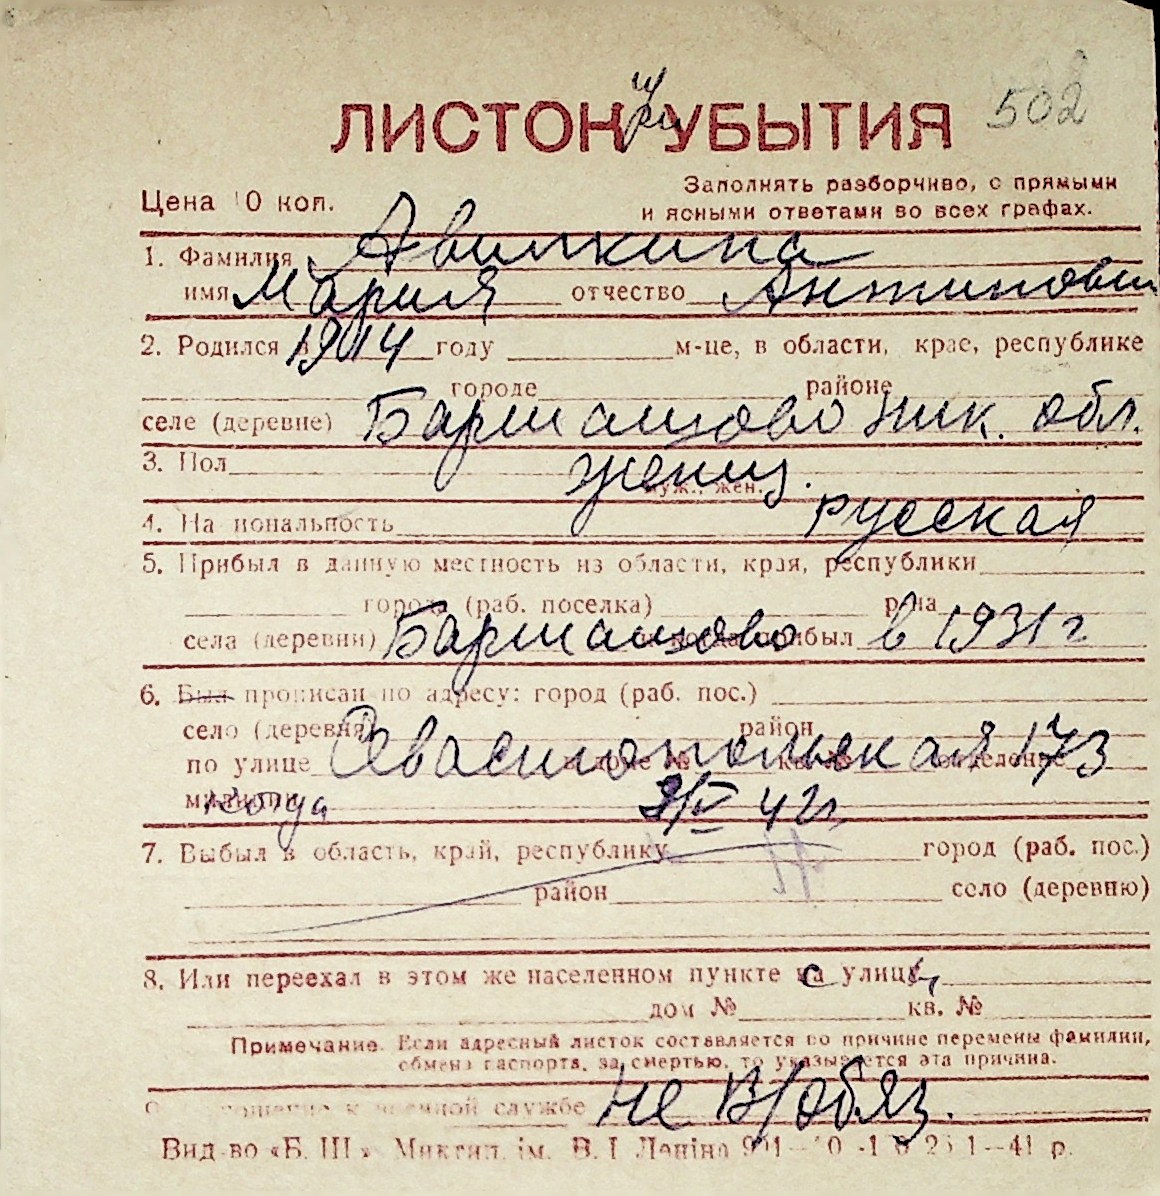 ЛИСТОК УБЫТИЯ 502
Цена 10 коп.
Заполнять разборчиво, с прямыми
и ясными ответами во всех графах.
1. Фамилия Авилкина
имя Мария отчество Антиповн
2. Родился в 1914 году м-це, в области, крае, республике
городе районе
селе (деревне) Бармашово Ник. обл.
3. Пол женщ.
муж., жен.
4. Национальность русская
5. Прибыл в данную местность из области, края, республики
города (раб. поселка) р-на
села (деревни) Бармашово и когда прибыл в 1931 г
6. Был прописан по адресу: город (раб. пос.)
село (деревня) район
по улице Севастопольская 173 дом № кв. № отделение
милиции Когда 42 г.
7. Выбыл в область, край, республику город (раб. пос.)
район село (деревню)
8. Или переехал в этом же населенном пункте с улицы
дом № кв. №
Примечание. Если адресный листок составляется по причине перемены фамилии,
обмена паспорта, за смертью, то указывается эта причина.
9. Отношение к военной службе не в/обяз.
Вид-во «Б. Ш.» Миктип. ім. В. І Леніна 1—41 р.